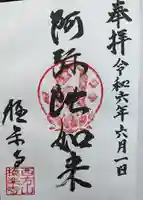 奉拝
令和六年六月一日
阿弥陀如来